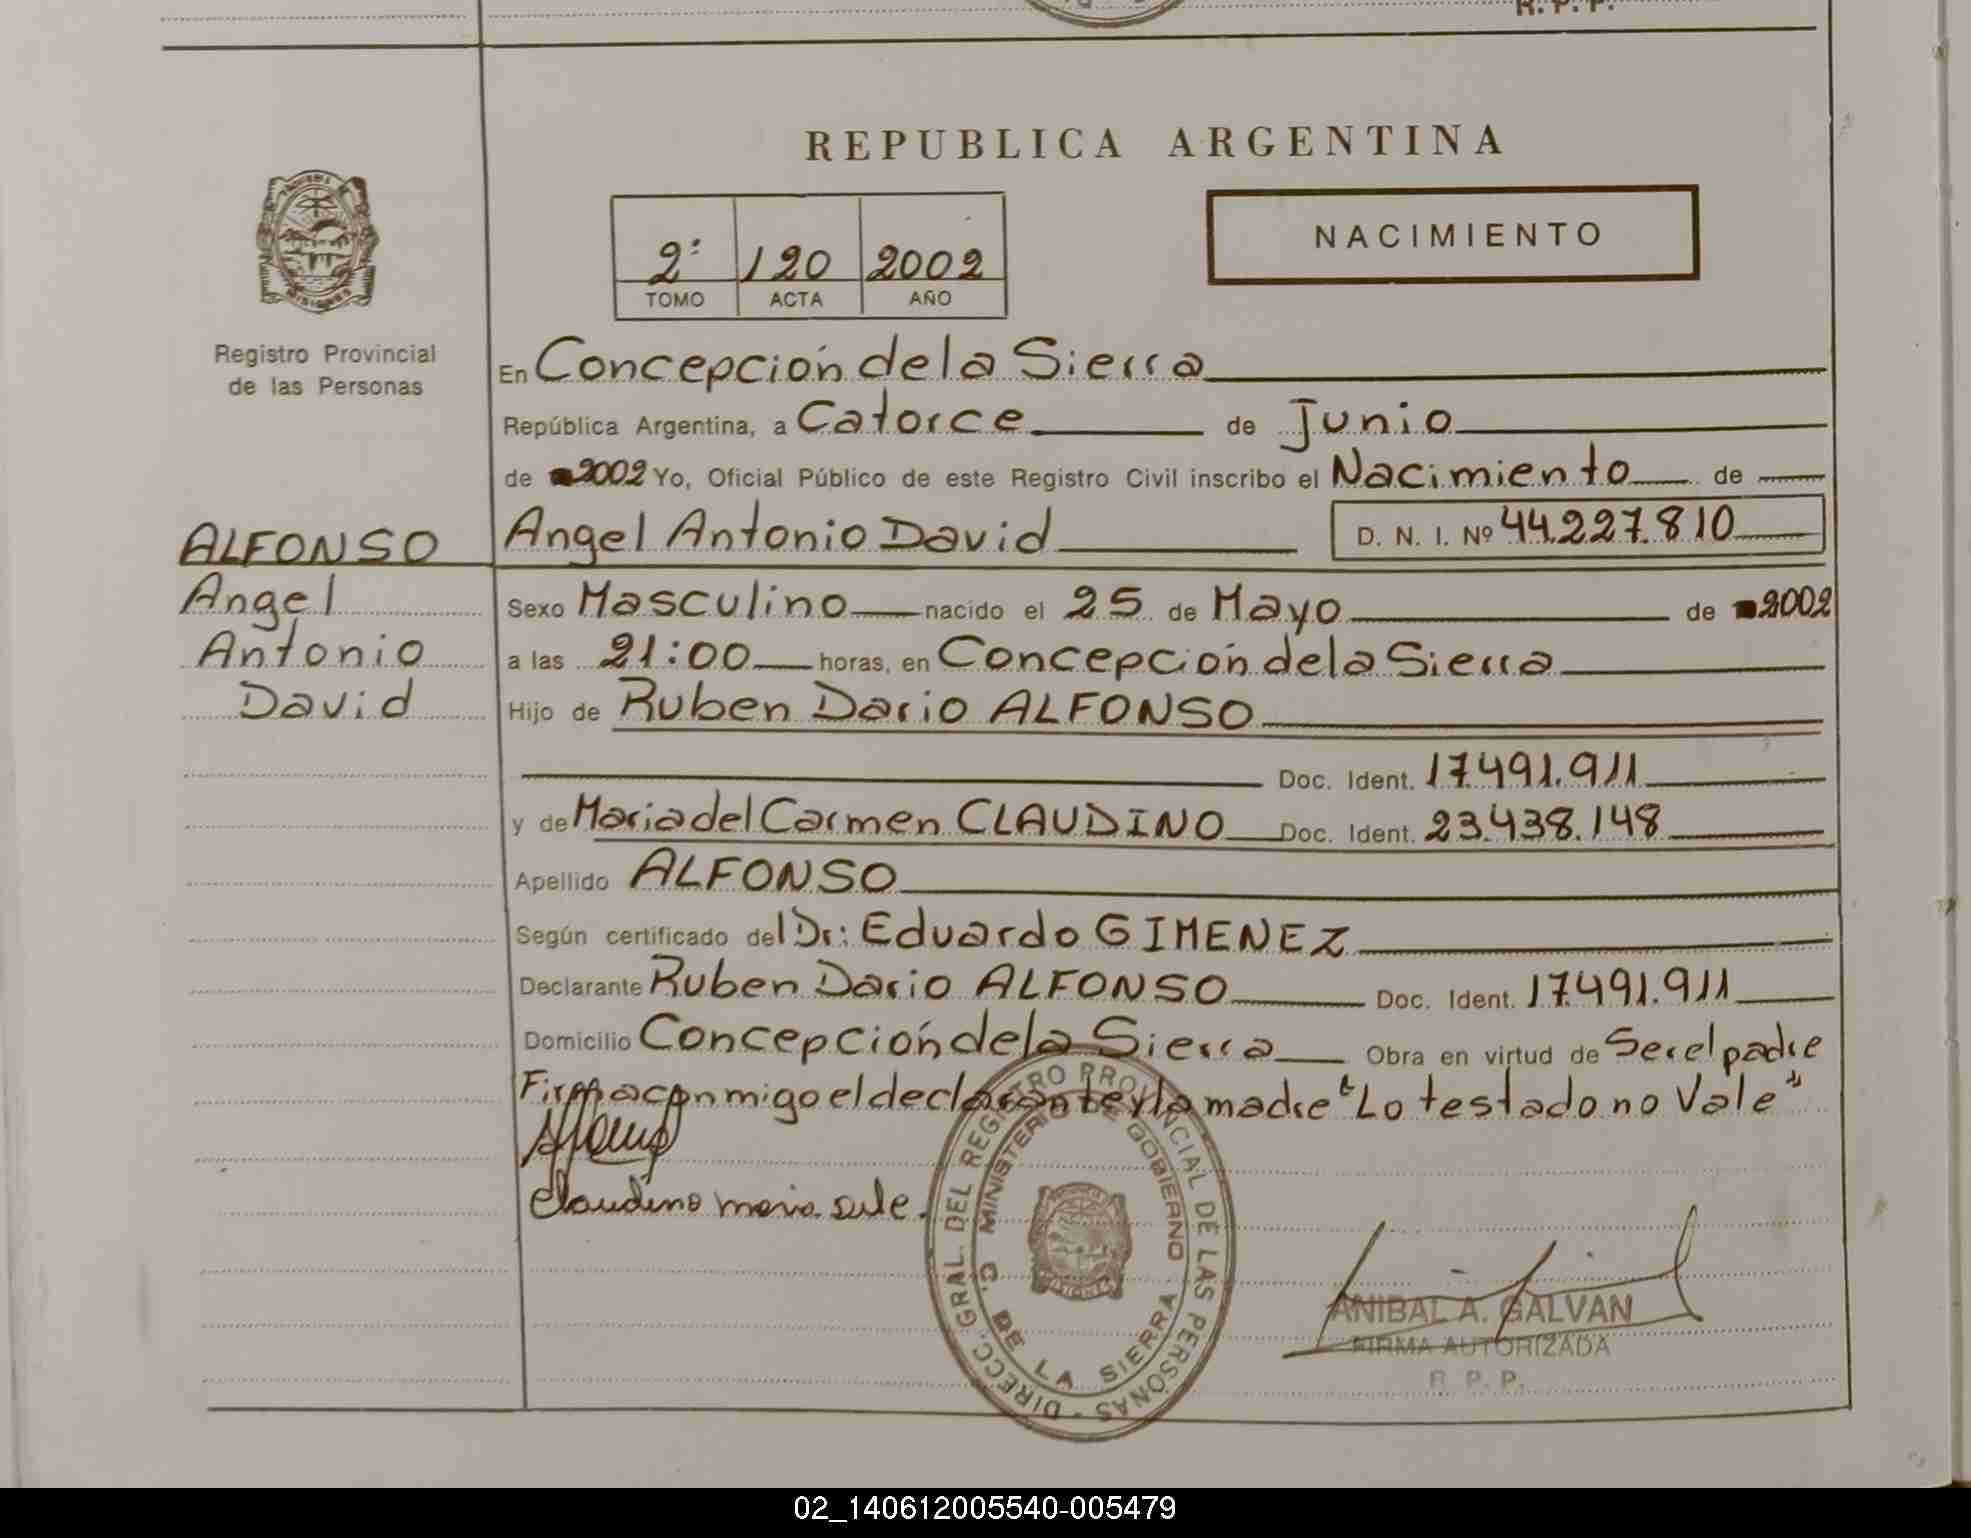 R. P. P.
REPUBLICA ARGENTINA
2º 120 2002
TOMO ACTA AÑO
NACIMIENTO
Registro Provincial
de las Personas
En Concepción de la Sierra
República Argentina, a Catorce de Junio
de 2002 Yo, Oficial Público de este Registro Civil inscribo el Nacimiento de
ALFONSO Angel Antonio David D. N. I. Nº 44.227.810
Angel Sexo Masculino nacido el 25 de Mayo de 2002
Antonio a las 21:00 horas, en Concepción de la Sierra
David Hijo de Ruben Dario ALFONSO
Doc. Ident. 17.491.911
y de Maria del Carmen CLAUDINO Doc. Ident. 23.438.148
Apellido ALFONSO
Según certificado del Dr: Eduardo GIMENEZ
Declarante Ruben Dario ALFONSO Doc. Ident. 17.491.911
Domicilio Concepción de la Sierra Obra en virtud de Ser el padre
Firma conmigo el declarante y la madre "Lo testado no Vale"
Claudino maria
DIRECC. GRAL. DEL REGISTRO PROVINCIAL DE LAS PERSONAS
MINISTERIO DE GOBIERNO
C. DE LA SIERRA
MISIONES
ANIBAL A. GALVAN
FIRMA AUTORIZADA
R. P. P.
02_140612005540-005479